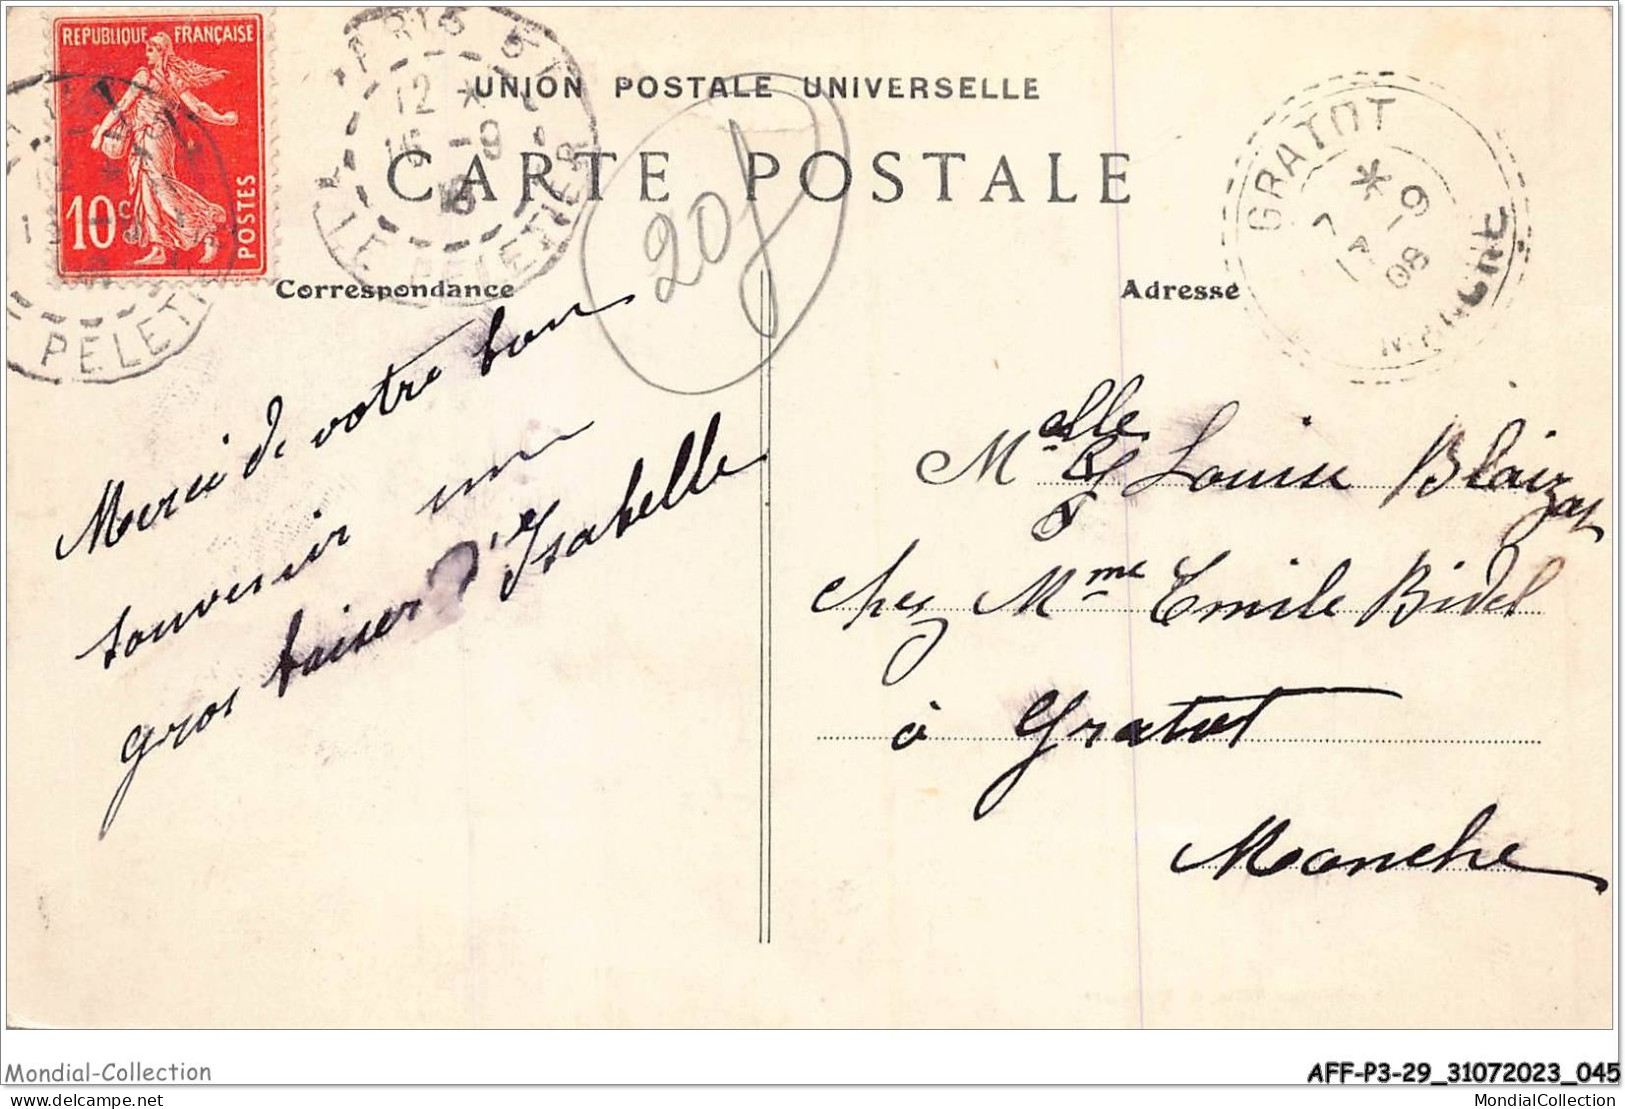 REPUBLIQUE FRANÇAISE
10c
POSTES
PELET
PARIS
12 *
16 -9
LE PELETIER
UNION POSTALE UNIVERSELLE
CARTE POSTALE
20f
GRATOT
* 9
7
08
MANCHE
Correspondance
Adresse
Merci de votre bon
souvenir un
gros baiser d'Isabelle
Melle Louise Blaizot
chez Mme Emile Bidel
à Gratot
Manche
Mondial-Collection
AFF-P3-29_31072023_045
delcampe.net
MondialCollection